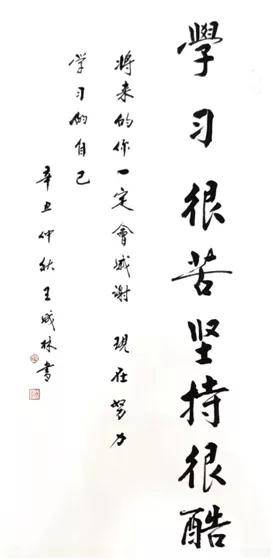 學习很苦坚持很酷
将来的你一定會感谢现在努力
学习的自己
辛丑仲秋王成林書